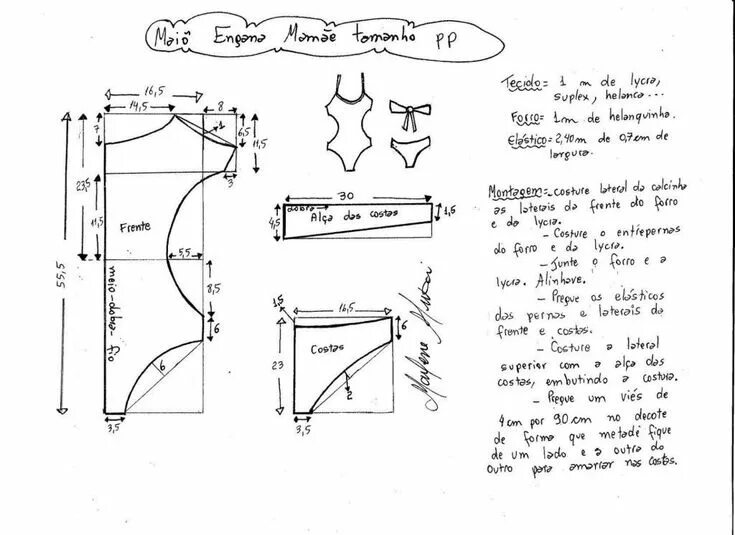 Maiô Engana Mamãe tamanho PP
16,5
14,5
8
7
1
6,5
11,5
3
23,5
11,5
Frente
5,5
55,5
meio-dobra-fio
8,5
6
6
3,5
30
dobra
Alça das costas
4,5
1,5
1,5
16,5
6
Costas
23
2
3,5
Marlene Mukai
Tecido= 1 m de lycra,
suplex, helanca...
Forro= 1m de helanquinha.
Elástico= 2,40m de 0,7cm de
largura.
Montagem= costure lateral da calcinha
as laterais da frente do forro
e da lycra.
- Costure o entrepernas
do forro e da lycra.
- Junte o forro e a
lycra. Alinhave.
- Pregue os elásticos
das pernas e laterais da
frente e costas.
- Costure a lateral
superior com a alça das
costas, embutindo a costura.
- Pregue um viés de
4cm por 90cm no decote
de forma que metade fique
de um lado e a outra do
outro para amarrar nas costas.